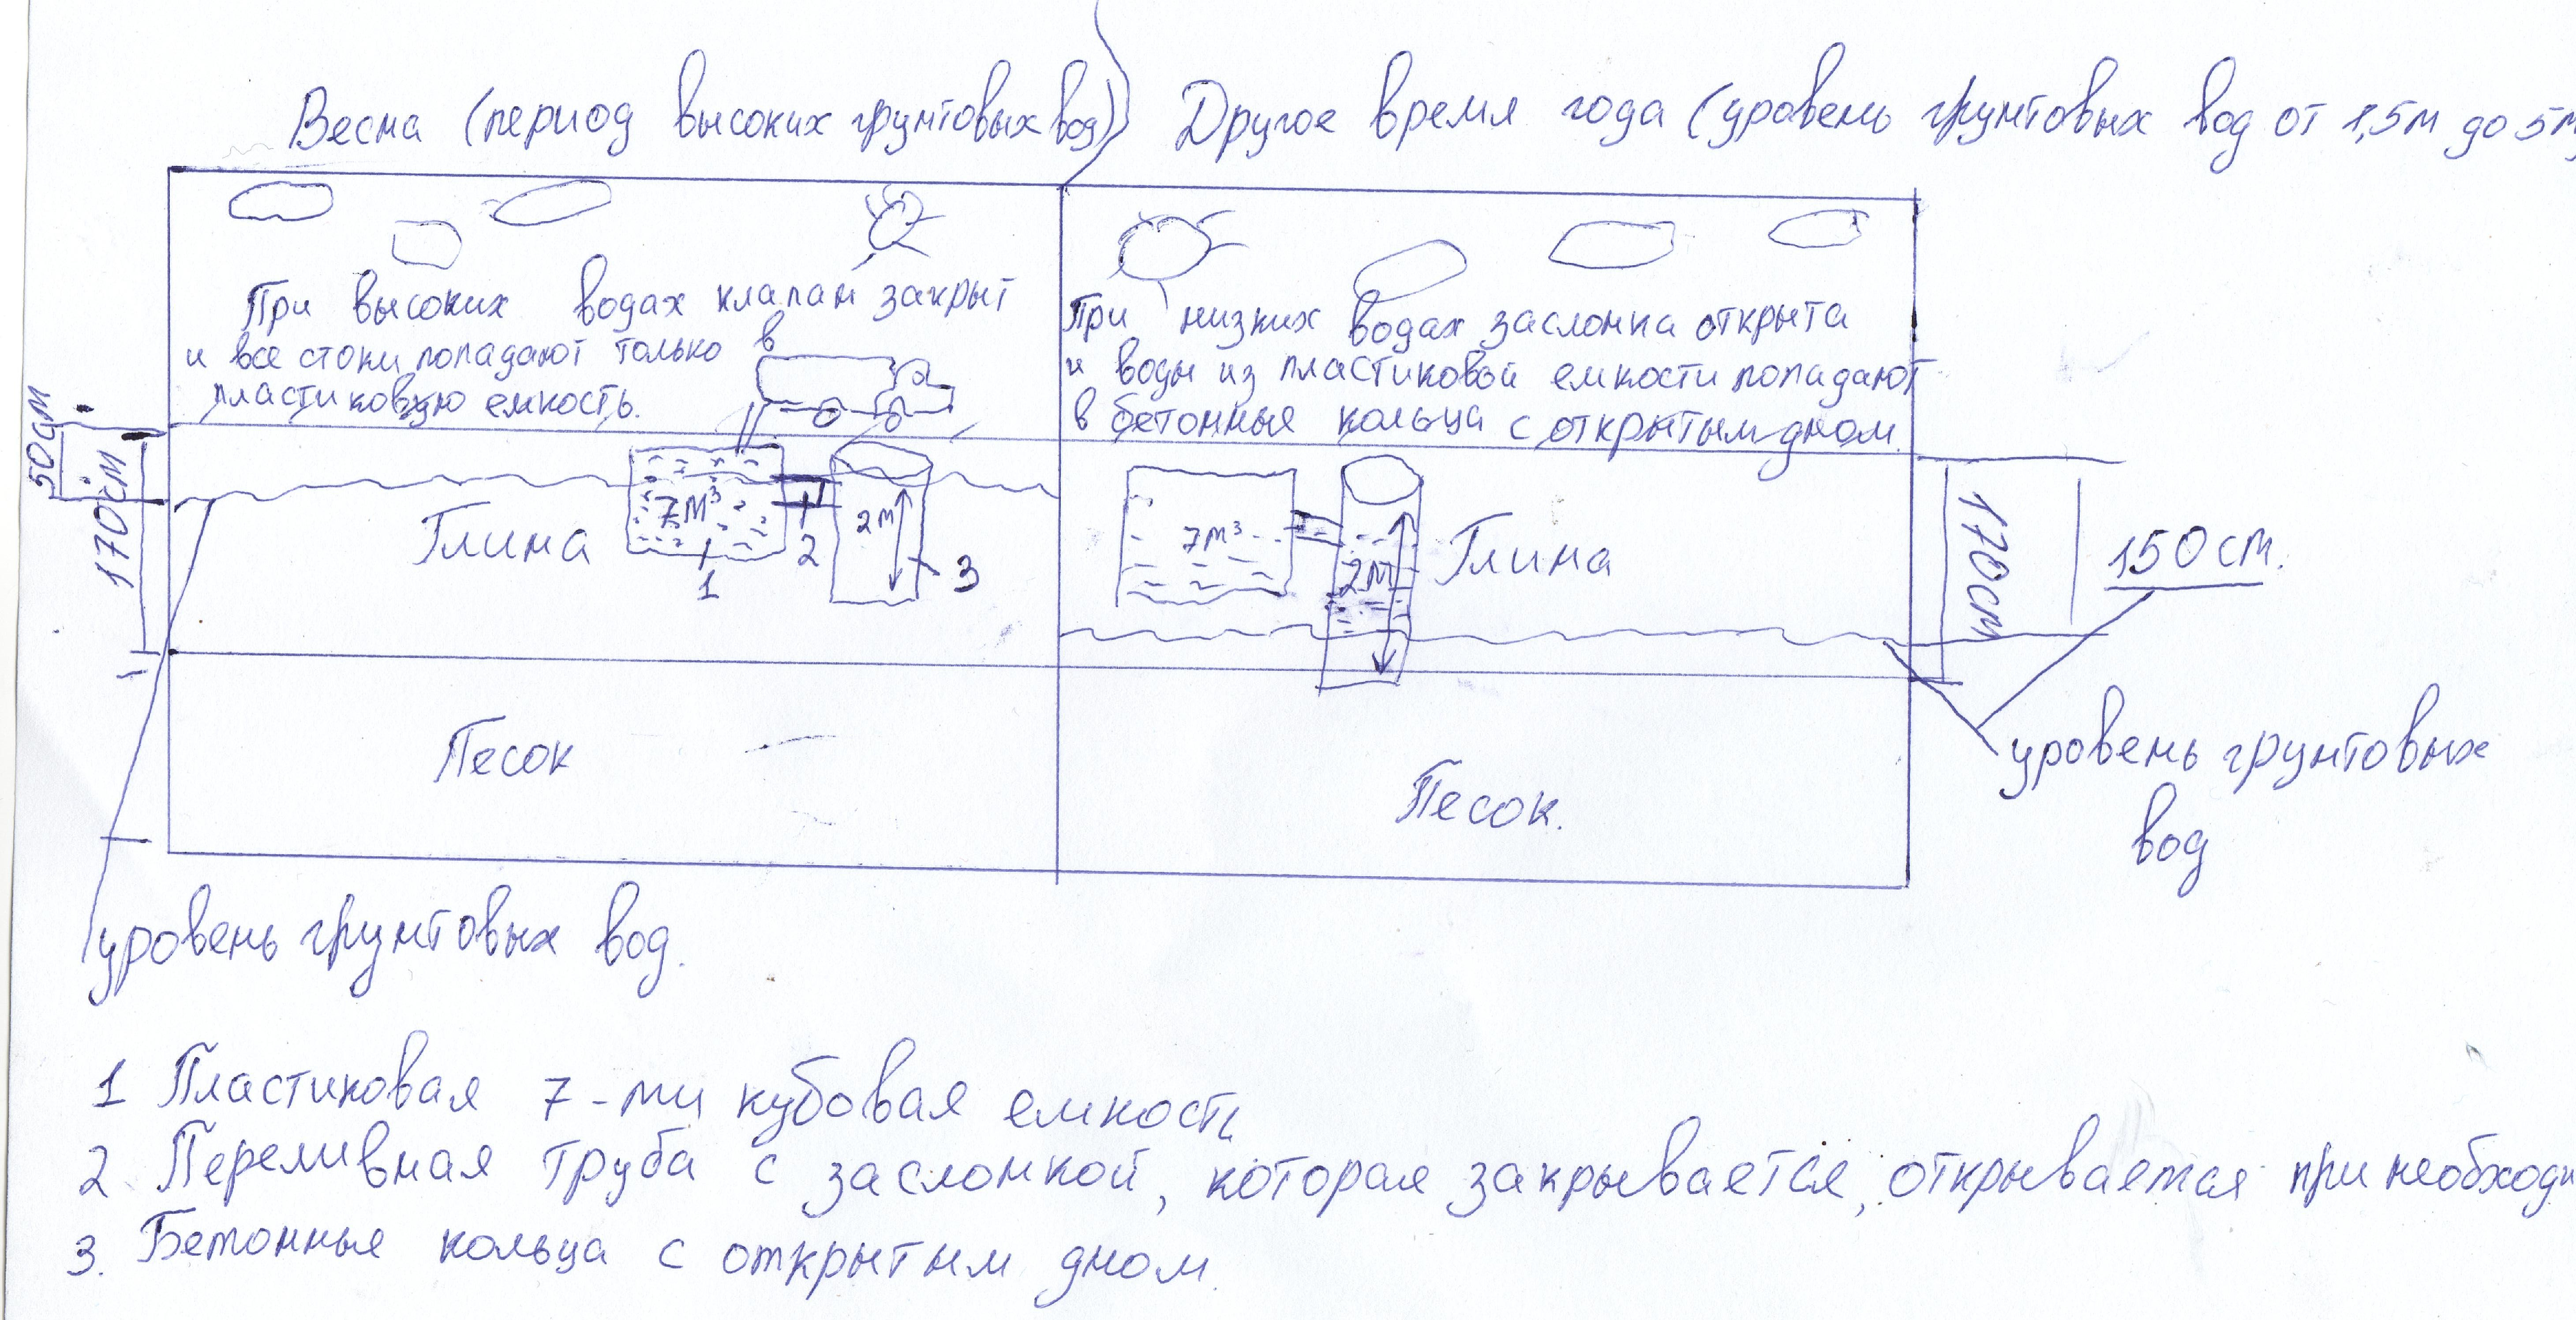 Весна (период высоких грунтовых вод)
Другое время года (уровень грунтовых вод от 1,5м до 5м)
При высоких водах клапан закрыт
и все стоки попадают только в
пластиковую емкость.
При низких водах заслонка открыта
и воды из пластиковой емкости попадают
в бетонные кольца с открытым дном.
50см
170см
Глина
7м³
1
2
2м
3
7м³
2м
Глина
170см
150см.
Песок
Песок.
уровень грунтовых
вод
уровень грунтовых вод.
1 Пластиковая 7-ми кубовая емкость
2 Переливная труба с заслонкой, которая закрывается, открывается при необходи
3. Бетонные кольца с открытым дном.